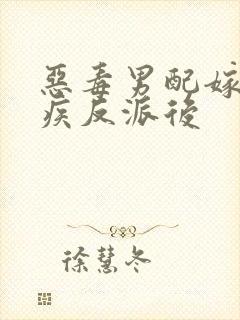 惡毒男配嫁
疾反派後
徐慧冬